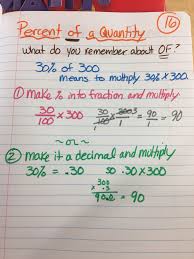 Percent of a Quantity
16
What do you remember about OF?
30% of 300
means to multiply 30% × 300
① make % into fraction and multiply
30/100 × 300
30/100 × 300/1 = 90/1 = 90
~or~
② make it a decimal and multiply
30% = .30 so .30 × 300
300
× .3
90.0 = 90